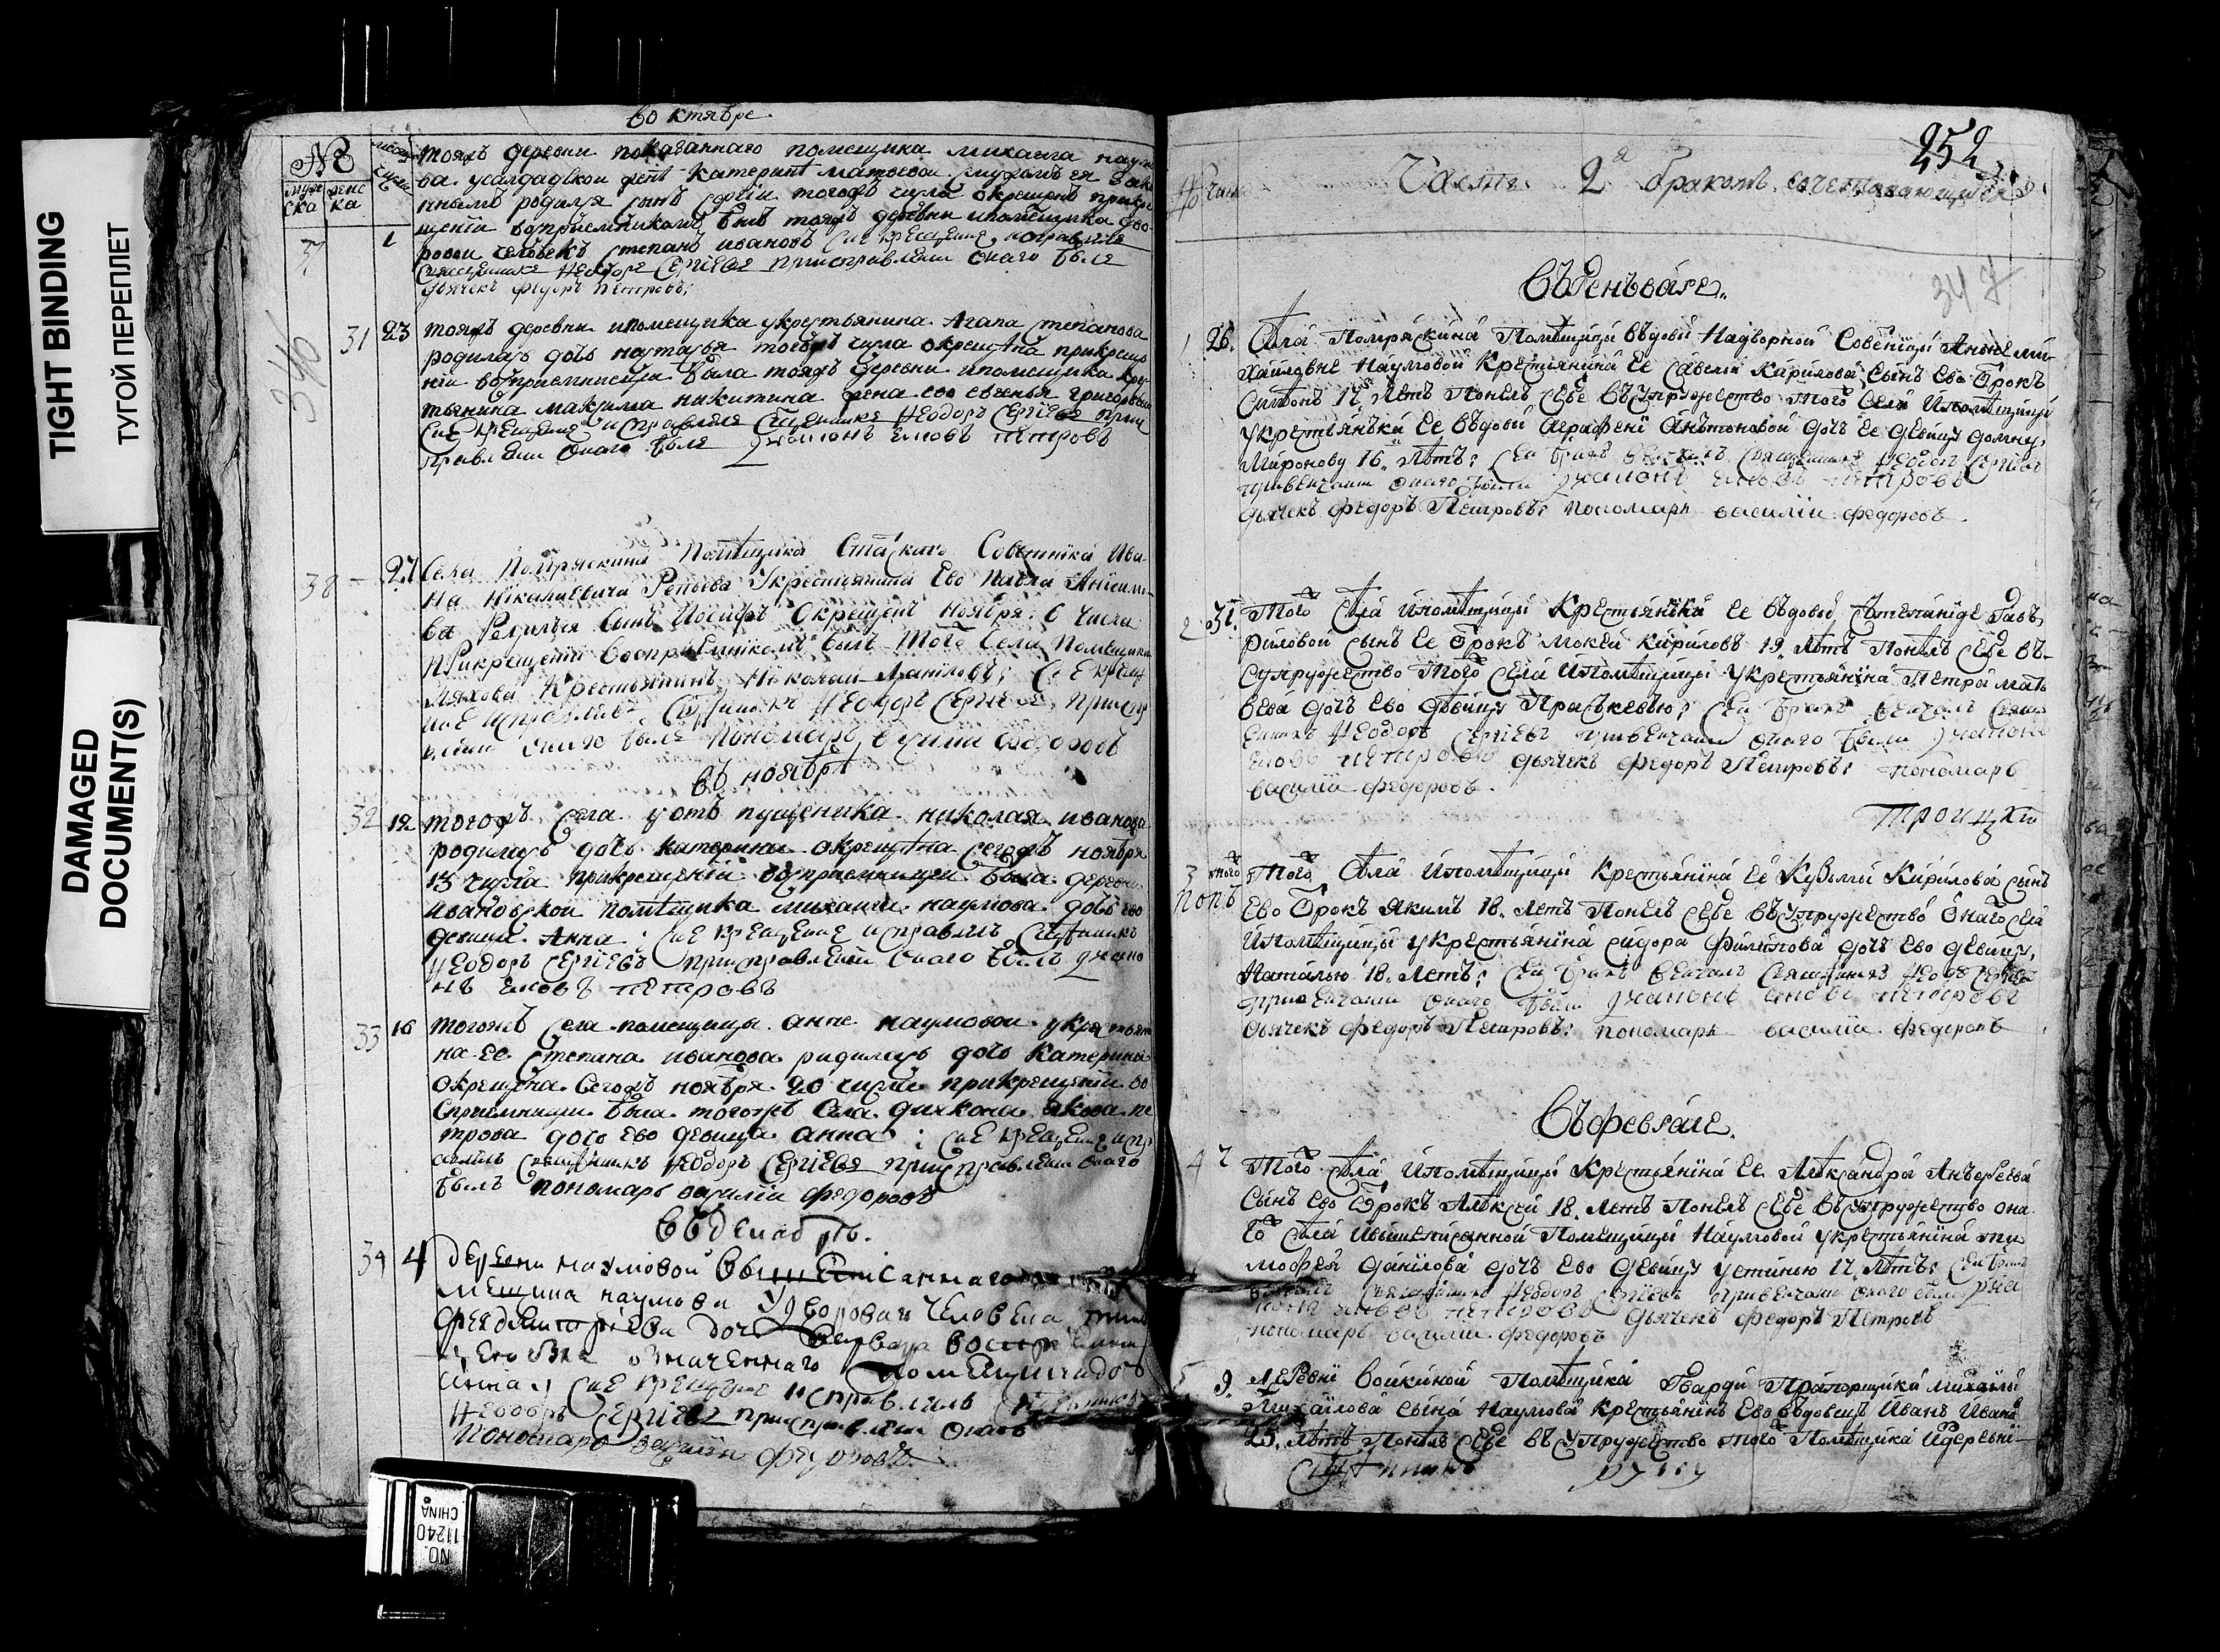 TIGHT BINDING
ТУГОЙ ПЕРЕПЛЕТ
DAMAGED
DOCUMENT(S)
NO.
11240
CHINA
во ктябре
№
муже ска женс ка числа
тояжъ деревни показаннаго помещика михаила наумо
ва усалдадской жене катерине матвеевой
ннымъ родился сынъ тогожъ числа окрещенъ прикре
щении восприемникомъ былъ тояжъ деревни ипомещика дво
37 1 ровой человекъ степанъ ивановъ сие крещение исправлялъ
священникъ Ѳеодоръ Сергиевъ приисправлении онаго былъ
дьячекъ федоръ петровъ
346
31 23 тояжъ деревни ипомещика укрестьянина Агапа степанова
родилась дочь настасья тогожъ числа окрещена прикреще
нии восприемницей была тояжъ деревни ипомещика кре
стьянина максима никитина жена ево евгенья григорьева
сие крещение исправлялъ священникъ Ѳеодоръ Сергиевъ приис
правлении онаго былъ диаконъ Иаковъ петровъ
38 27 Села Помряскина Помещика Стацкаго Советника Ива
на Николаевича Репьева Укрестьянина Ево Павла Анисимо
ва Родился сынъ Иосифъ Окрещенъ ноября 6 числа
Прикрещении восприемникомъ былъ Того Села Помещика
Ляхова Крестьянинъ Николай Даниловъ; Сие креще
ние исправлялъ Священникъ Ѳеодоръ Сергиевъ приисправ
лении онаго былъ пономарь василий федоровъ
въ ноябре
32 12 тогожъ села уотъ пущеника николая иванова
родилась дочь катерина окрещена сегожъ ноября
13 числа прикрещении восприемницей была деревни
ивановской помещика михаила наумова дочь ево
девица Анна; сие крещение исправлялъ Священникъ
Ѳеодоръ Сергиевъ приисправлении онаго былъ диако
нъ Иаковъ петровъ
33 16 тогожъ села помещицы анне наумовой укрестьяни
на ее степана иванова родилась дочь катерина
окрещена сегожъ ноября 20 числа прикрещении во
сприемницей была тогожъ села диакона якова пе
трова дочь ево девица анна; сие крещение испр
авлялъ священникъ Ѳеодоръ Сергиевъ приисправлении онаго
былъ пономарь василий федоровъ
въ декабре
34 4 деревни наумовой вышеписаннаго
мещика наумова удвороваго человека
дочь варвара
означеннаго помещика до
анна сие крещение исправлялъ священникъ
Ѳеодоръ Сергиевъ приисправлении онаго
пономарь василий федоровъ
252
Часть 2я бракомъ сочетавающихся
347
Въ генъваре
1 26. Села Помряскина Помещицы въдовы Надворной Советницы Анне ми
хайловне Наумовой Крестьянина ее Савелия Кирилова сынъ ево Отрокъ
Симонъ 17 летъ Понелъ себе въсупружество того села Ипомещицы
укрестьянки ее въдовы Аграфены Анътоновой дочь ее девицу домну
Миронову 16 летъ: сей бракъ венчалъ священникъ Ѳеодоръ Сергиевъ
привенчании онаго были диаконъ Иаковъ петровъ
дьячекъ федоръ Петровъ: пономарь василий федоровъ
2 31. Того села Ипомещицы Крестьянки ее въдовы Степаниде Гав
риловой сынъ ее Отрокъ мокей кириловъ 19 летъ Понелъ себе въ
супружество того села Ипомещицы укрестьянина Петра мать
веева дочь ево девицу Прасковью: сей бракъ венчалъ свяще
нникъ Ѳеодоръ Сергиевъ привенчании онаго были диаконъ
Иаковъ петровъ дьячекъ федоръ Петровъ: пономарь
василий федоровъ
Троицкий
3 того Того села Ипомещицы Крестьянина ее Кузьмы Кирилова сынъ
попъ ево Отрокъ Якимъ 18 летъ Понелъ себе въсупружество онаго села
Ипомещицы укрестьянина сидора Филипова дочь ево девицу
Наталью 18 летъ: сей бракъ венчалъ священникъ Ѳеодоръ Сергиевъ
привенчании онаго были диаконъ Иаковъ петровъ
дьячекъ федоръ Петровъ: пономарь василий федоровъ
Въ феврале
4 7 Того села Ипомещицы Крестьянина ее Александра Анъдреева
сынъ ево Отрокъ Алексей 18 летъ Понелъ себе въсупружество она
го села Ивышеписанной Помещицы Наумовой укрестьянина ти
мофея данилова дочь ево девицу устинью 17 летъ: сей бракъ
венчалъ священникъ Ѳеодоръ Сергиевъ привенчании онаго были диа
конъ Иаковъ петровъ дьячекъ федоръ Петровъ
пономарь василий федоровъ
5 9. Деревни Войкиной Помещика Гвардии Прапорщика Михайлы
Михайлова сына Наумова Крестьянинъ ево въдовецъ Иванъ Ивано
25 летъ Понелъ себе въсупружество того Помещика Идеревни
Священникъ руку